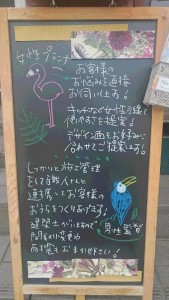 女性プランナー
お客様の
お悩みを直接
お伺います!
キッチンなど女性目線で
使いやすさを提案♪
デザイン面もお好みに
合わせてご提案します!
しっかりと施工管理
をして職人さんと
連携してお客様の
おうちをつくりあげます!
建築士がいますので
間取り変更や
耐震もおまかせ下さい!
男性監督